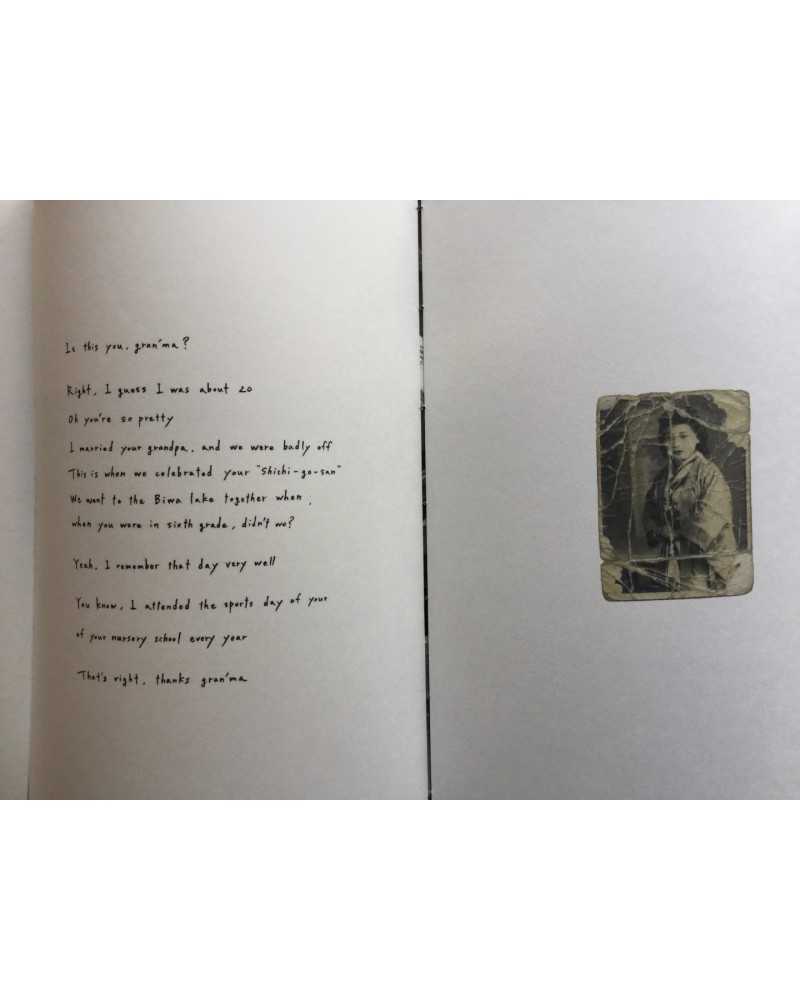 Is this you, gran'ma?
Right, I guess I was about 20
Oh you're so pretty
I married your grandpa, and we were badly off
This is when we celebrated your "Shichi-go-san"
We went to the Biwa lake together when,
when you were in sixth grade, didn't we?
Yeah, I remember that day very well
You know, I attended the sports day of your
of your nursery school every year
That's right, thanks gran'ma